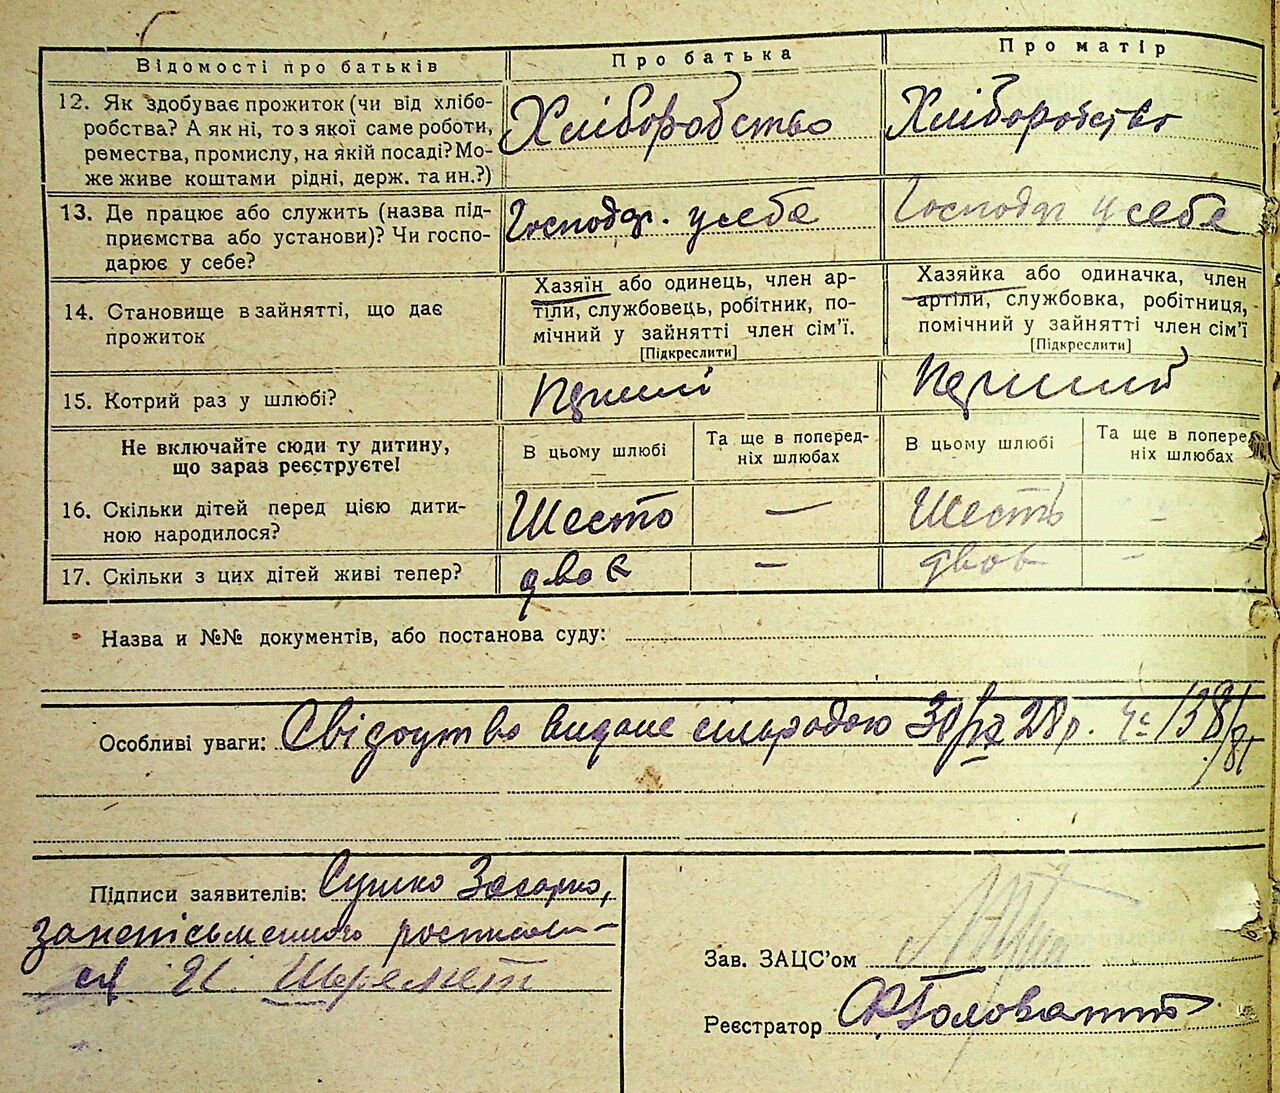 Відомості про батьків
Про батька
Про матір
12. Як здобуває прожиток (чи від хлібо-
робства? А як ні, то з якої саме роботи,
ремества, промислу, на якій посаді? Мо-
же живе коштами рідні, держ. та ин.?)
Хліборобство
Хліборобство
13. Де працює або служить (назва під-
приємства або установи)? Чи госпо-
дарює у себе?
Господар. у себе
Господар у себе
14. Становище в зайнятті, що дає
прожиток
Хазяїн або одинець, член ар-
тіли, службовець, робітник, по-
мічний у зайнятті член сім’ї.
[Підкреслити]
Хазяйка або одиначка, член
артіли, службовка, робітниця,
помічний у зайнятті член сім’ї
[Підкреслити]
15. Котрий раз у шлюбі?
Перший
Перший
Не включайте сюди ту дитину,
що зараз реєструєте!
В цьому шлюбі
Та ще в поперед-
ніх шлюбах
В цьому шлюбі
Та ще в поперед
ніх шлюбах
16. Скільки дітей перед цією дити-
ною народилося?
Шесть
—
Шесть
—
17. Скільки з цих дітей живі тепер?
двоє
—
двоє
—
Назва и №№ документів, або постанова суду:
Особливі уваги: Свідоцтво видане сільрадою 28 р.
Підписи заявителів: Сушко Захарко,
за неписьменного росписав-
ся И. Шеремет
Зав. ЗАЦС’ом
Реєстратор Головатий